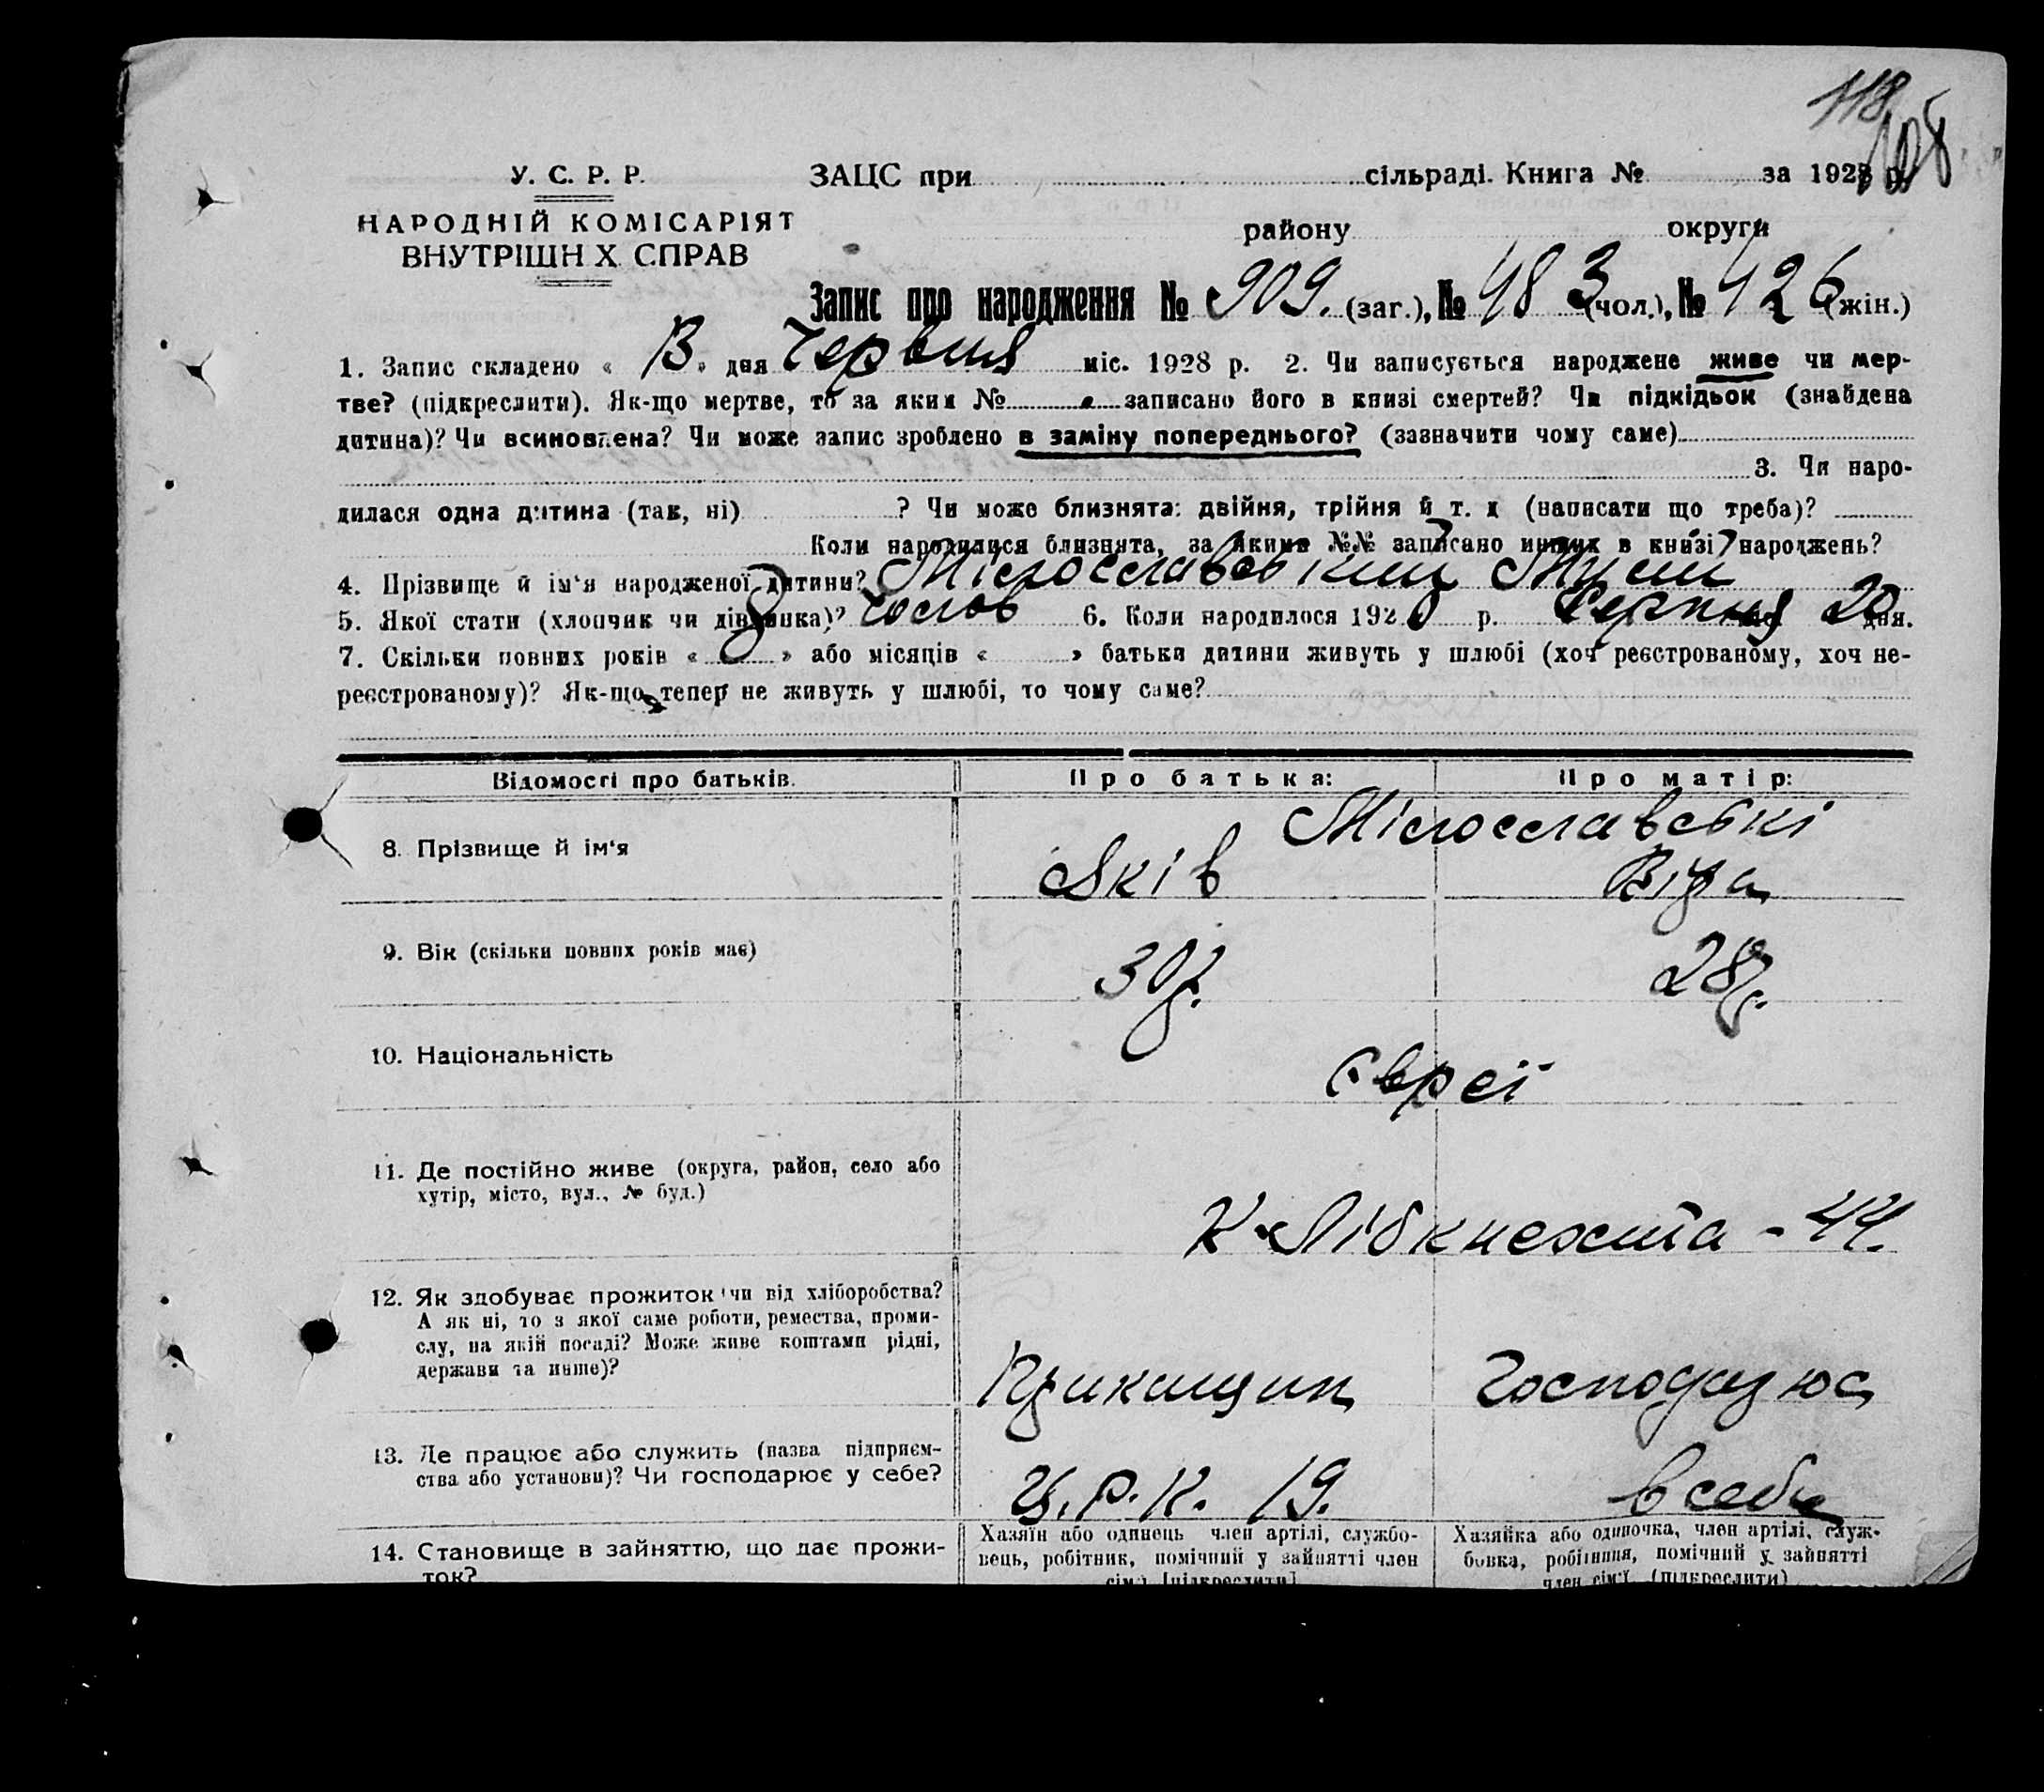 118
108
У. С. Р. Р. ЗАЦС при сільраді. Книга № за 1928 р.
НАРОДНІЙ КОМІСАРІЯТ
ВНУТРІШН Х СПРАВ
району округи
Запис про народження № 909. (заг.), № 483 (чол.), № 426 (жін.)
1. Запис складено « 13 » дня Червня міс. 1928 р. 2. Чи записується народжене живе чи мер-
тве? (підкреслити). Як-що мертве, то за яким № записано його в книзі смертей? Чи підкідьок (знайдена
дитина)? Чи всиновлена? Чи може запис зроблено в заміну попереднього? (зазначити чому саме)
3. Чи наро-
дилася одна дитина (так, ні) ? Чи може близнята: двійня, трійня й т. д (написати що треба)?
Коли народилися близнята, за якими №№ записано инших в книзі народжень?
4. Прізвище й ім'я народженої дитини? Мусій
5. Якої стати (хлопчик чи дівчинка)? 6. Коли народилося 192 р. Серпня 20 дня.
7. Скільки повних років « 8 » або місяців « » батьки дитини живуть у шлюбі (хоч реєстрованому, хоч не-
реєстрованому)? Як-що тепер не живуть у шлюбі, то чому саме?
Відомості про батьків. Про батька: Про матір:
Мілославські
8. Прізвище й ім'я Яків Віра
9. Вік (скільки повних років має) 30 р. 28 р.
10. Національність Євреї
11. Де постійно живе (округа, район, село або
хутір, місто, вул., № буд.) К. Лібкнехта - 44.
12. Як здобуває прожиток чи від хліборобства?
А як ні, то з якої саме роботи, ремества, проми-
слу, на якій посаді? Може живе коштами рідні,
держави та инше)? Прикащик Господарює
13. Де працює або служить (назва підприєм-
ства або установи)? Чи господарює у себе? Ц. Р. К. 19. в себе
14. Становище в зайняттю, що дає прожи-
ток?
Хазяїн або одинець член артілі, службо-
вець, робітник, помічний у зайнятті член
сім'ї [підкреслити]
Хазяйка або одиночка, член артілі, служ-
бовка, робітниця, помічний у зайнятті
член сім'ї (підкреслити)